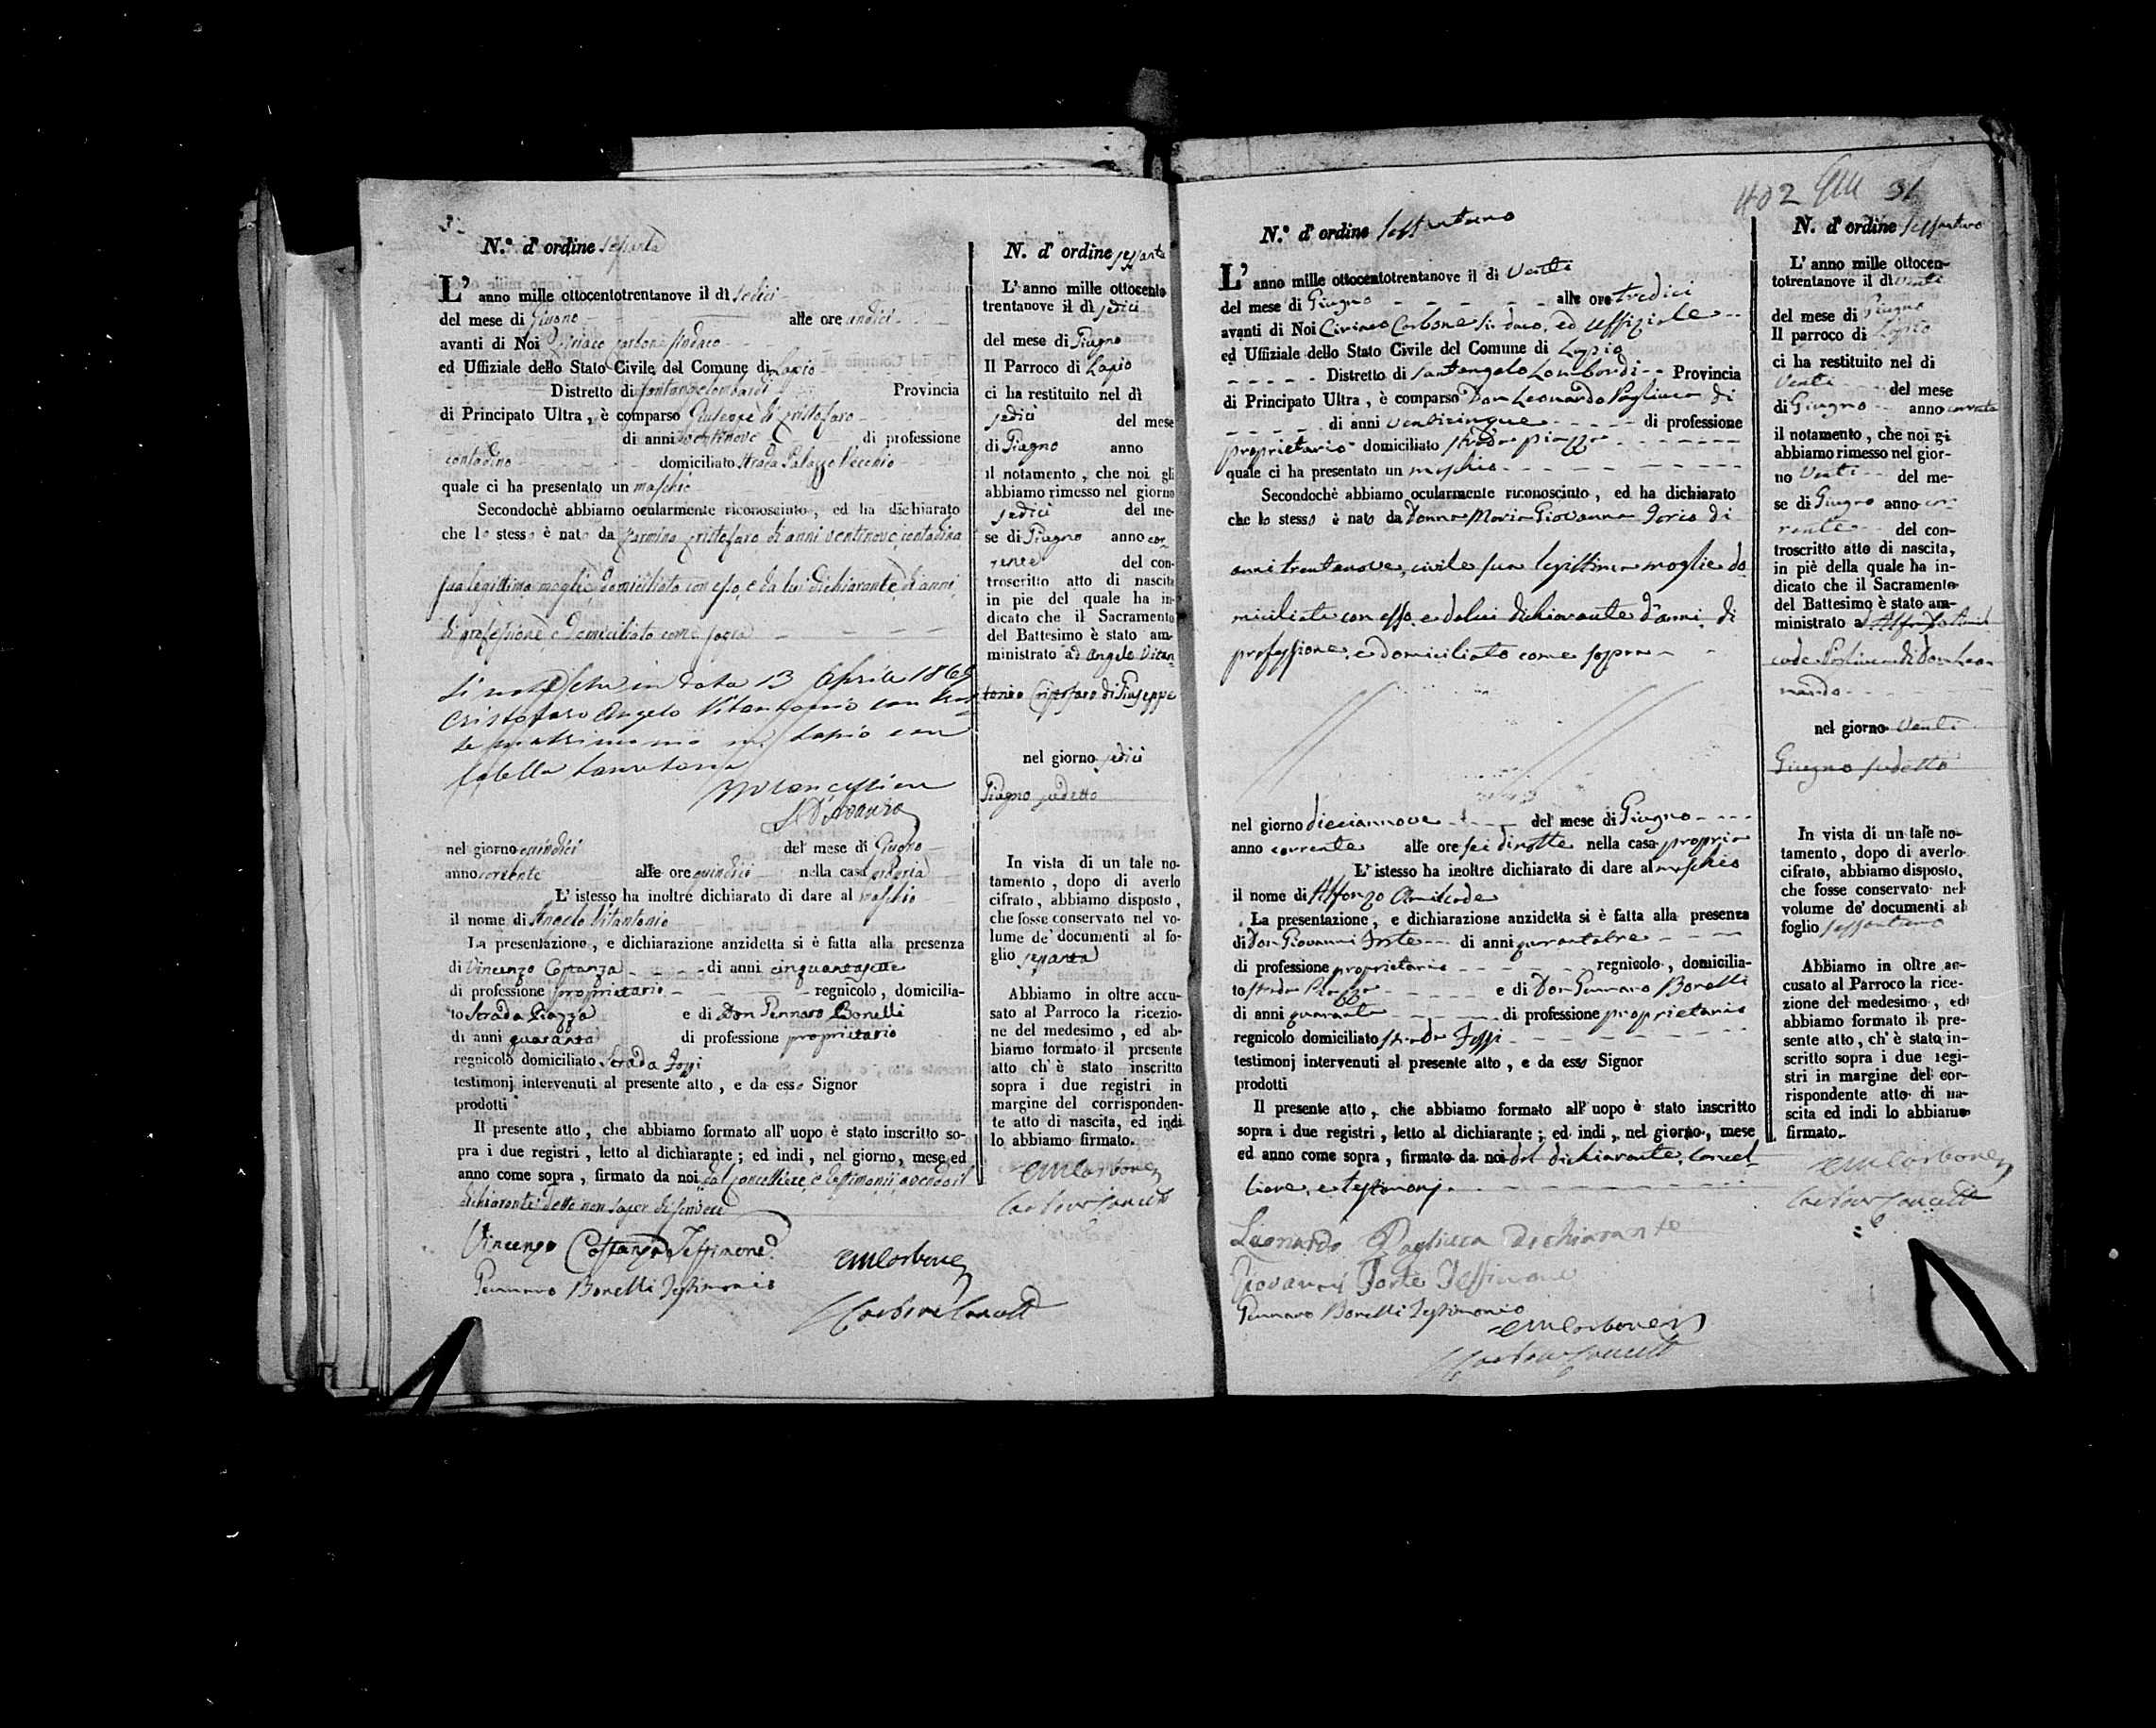 N.° d' ordine sessanta
L' anno mille ottocentotrentanove il dì sedici
del mese di Giugno alle ore undici
avanti di Noi Ciriaco Carbone Sindaco
ed Uffiziale dello Stato Civile del Comune di Lapio
Distretto di Santangelolombardi Provincia
di Principato Ultra, è comparso Giuseppe di Cristofaro
di anni ventinove di professione
contadino domiciliato strada Palazzo Vecchio
quale ci ha presentato un maschio
Secondochè abbiamo ocularmente riconosciuto, ed ha dichiarato
che lo stesso è nato da Carmina Cristofaro di anni ventinove contadina
sua legittima moglie domiciliata con esso, e da lui dichiarante di anni
di professione e domiciliato come sopra
Si nota che in data 13 Aprile
Cristofaro Angelo Vitantonio con
matrimonio in Lapio con
nel giorno quindici del mese di Giugno
anno corrente alle ore quindici nella casa propria
L' istesso ha inoltre dichiarato di dare al maschio
il nome di Angelo Vitantonio
La presentazione, e dichiarazione anzidetta si è fatta alla presenza
di Vincenzo Costanza di anni cinquantasette
di professione proprietario regnicolo, domicilia-
to Strada Piazza e di Don Gennaro Bonelli
di anni quaranta di professione proprietario
regnicolo domiciliato Strada Fossi
testimonj intervenuti al presente atto, e da esso Signor
prodotti
Il presente atto, che abbiamo formato all' uopo è stato inscritto so-
pra i due registri, letto al dichiarante; ed indi, nel giorno, mese ed
anno come sopra, firmato da noi dal Cancelliere, e testimonii avendo il
dichiarante detto non saper di scrivere
Vincenzo Costanza Testimone
Gennaro Bonelli Testimonio
CMCarbone
N. d' ordine sessanta
L' anno mille ottocento
trentanove il dì sedici
del mese di Giugno
Il Parroco di Lapio
ci ha restituito nel dì
sedici del mese
di Giugno anno
il notamento, che noi gli
abbiamo rimesso nel giorno
sedici del me-
se di Giugno anno cor-
rente del con-
troscritto atto di nascita
in pie del quale ha in-
dicato che il Sacramento
del Battesimo è stato am-
ministrato ad Angelo Vitan-
tonio Cristofaro di Giuseppe
nel giorno sedici
Giugno sudetto
In vista di un tale no-
tamento, dopo di averlo
cifrato, abbiamo disposto,
che fosse conservato nel vo-
lume de' documenti al fo-
glio sessanta
Abbiamo in oltre accu-
sato al Parroco la ricezio-
ne del medesimo, ed ab-
biamo formato il presente
atto ch' è stato inscritto
sopra i due registri in
margine del corrisponden-
te atto di nascita, ed indi
lo abbiamo firmato.
CMCarbone
402 31
N.° d' ordine sessantuno
L' anno mille ottocentotrentanove il di Venti
del mese di Giugno alle ore tredici
avanti di Noi Ciriaco Carbone Sindaco, ed Uffiziale
ed Uffiziale dello Stato Civile del Comune di Lapio
Distretto di Santangelo Lombardi Provincia
di Principato Ultra, è comparso Don Leonardo Pagliuca di
di anni venticinque di professione
proprietario domiciliato strada piazza
quale ci ha presentato un maschio
Secondochè abbiamo ocularmente riconosciuto, ed ha dichiarato
che lo stesso è nato da Donna Maria Giovanna Iorio di
anni trentanove, civile sua legittima moglie do-
miciliata con esso, e da lui dichiarante d'anni, di
professione, e domiciliato come sopra
nel giorno dieciannove del mese di Giugno
anno corrente alle ore sei di notte nella casa propria
L' istesso ha inoltre dichiarato di dare al maschio
il nome di Alfonzo Amilcade
La presentazione, e dichiarazione anzidetta si è fatta alla presenza
di Don Giovanni Forte di anni quarantatre
di professione proprietario regnicolo, domicilia-
to strada Piazza e di Don Gennaro Bonelli
di anni quaranta di professione proprietario
regnicolo domiciliato strada Fossi
testimonj intervenuti al presente atto, e da esso Signor
prodotti
Il presente atto, che abbiamo formato all' uopo è stato inscritto
sopra i due registri, letto al dichiarante; ed indi, nel giorno, mese
ed anno come sopra, firmato da noi dal dichiarante, Cancel-
liere, e testimonj.
Leonardo Pagliuca Dichiarante
Giovanni Forte Testimone
Gennaro Bonelli Testimonio
CMCarbone
N. d' ordine sessantuno
L' anno mille ottocen-
totrentanove il dì venti
del mese di Giugno
Il parroco di Lapio
ci ha restituito nel di
Venti del mese
di Giugno anno corrente
il notamento, che noi gi
abbiamo rimesso nel gior-
no Venti del me-
se di Giugno anno cor-
rente del con-
troscritto atto di nascita,
in piè della quale ha in-
dicato che il Sacramento
del Battesimo è stato am-
ministrato a Alfonzo Amil-
cade Pagliuca di Don Leo-
nardo
nel giorno Venti
Giugno sudetto
In vista di un tale no-
tamento, dopo di averlo
cifrato, abbiamo disposto,
che fosse conservato nel
volume de' documenti al
foglio sessantuno
Abbiamo in oltre ac-
cusato al Parroco la rice-
zione del medesimo, ed
abbiamo formato il pre-
sente atto, ch' è stato in-
scritto sopra i due regi-
stri in margine del cor-
rispondente atto di na-
scita ed indi lo abbiamo
firmato.
CMCarbone